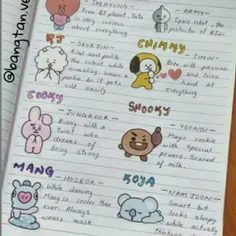 - TAEHYUNG -
from BT planet, Tata
is very curious
about everything
- ARMY -
Space robot, the
protector of BT21
RJ
- SEOKJIN -
Kind and polite
CHIMMY
- JIMIN -
with passion
and tries
hard at
everything
COOKY
- JUNGKOOK -
Bunny with a
twist who
dreams of
being strong
SHOOKY
- YOONGI -
Magic cookie
with special
powers. Scared
of milk.
MANG
- HOSEOK -
While dancing
Mang is cooler than
ever. Always
wears mask
KOYA
- NAMJOON -
Smart but
looks sleepy
while actually
thinking
@bangtan.ve